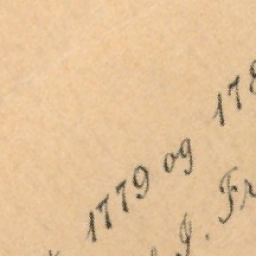 1779 og 178
J. Fr